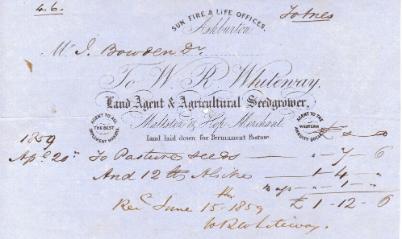 4.6. Totnes
SUN FIRE & LIFE OFFICES,
Ashburton
Mr J. Bowden Dr
To W R Whiteway,
Land Agent & Agricultural Seedgrower,
Maltster & Hop Merchant
Land laid down for Permanent Pasture
AGENT TO THE
WESTERN
£ s d
1859
Apl 20th To Pasture Seeds - 7 - 6
And 12 lb Alsike 1 - 4 -
Bags - 1 -
£ 1 - 12 - 6
Recd June 15th 1859
W R Whiteway.